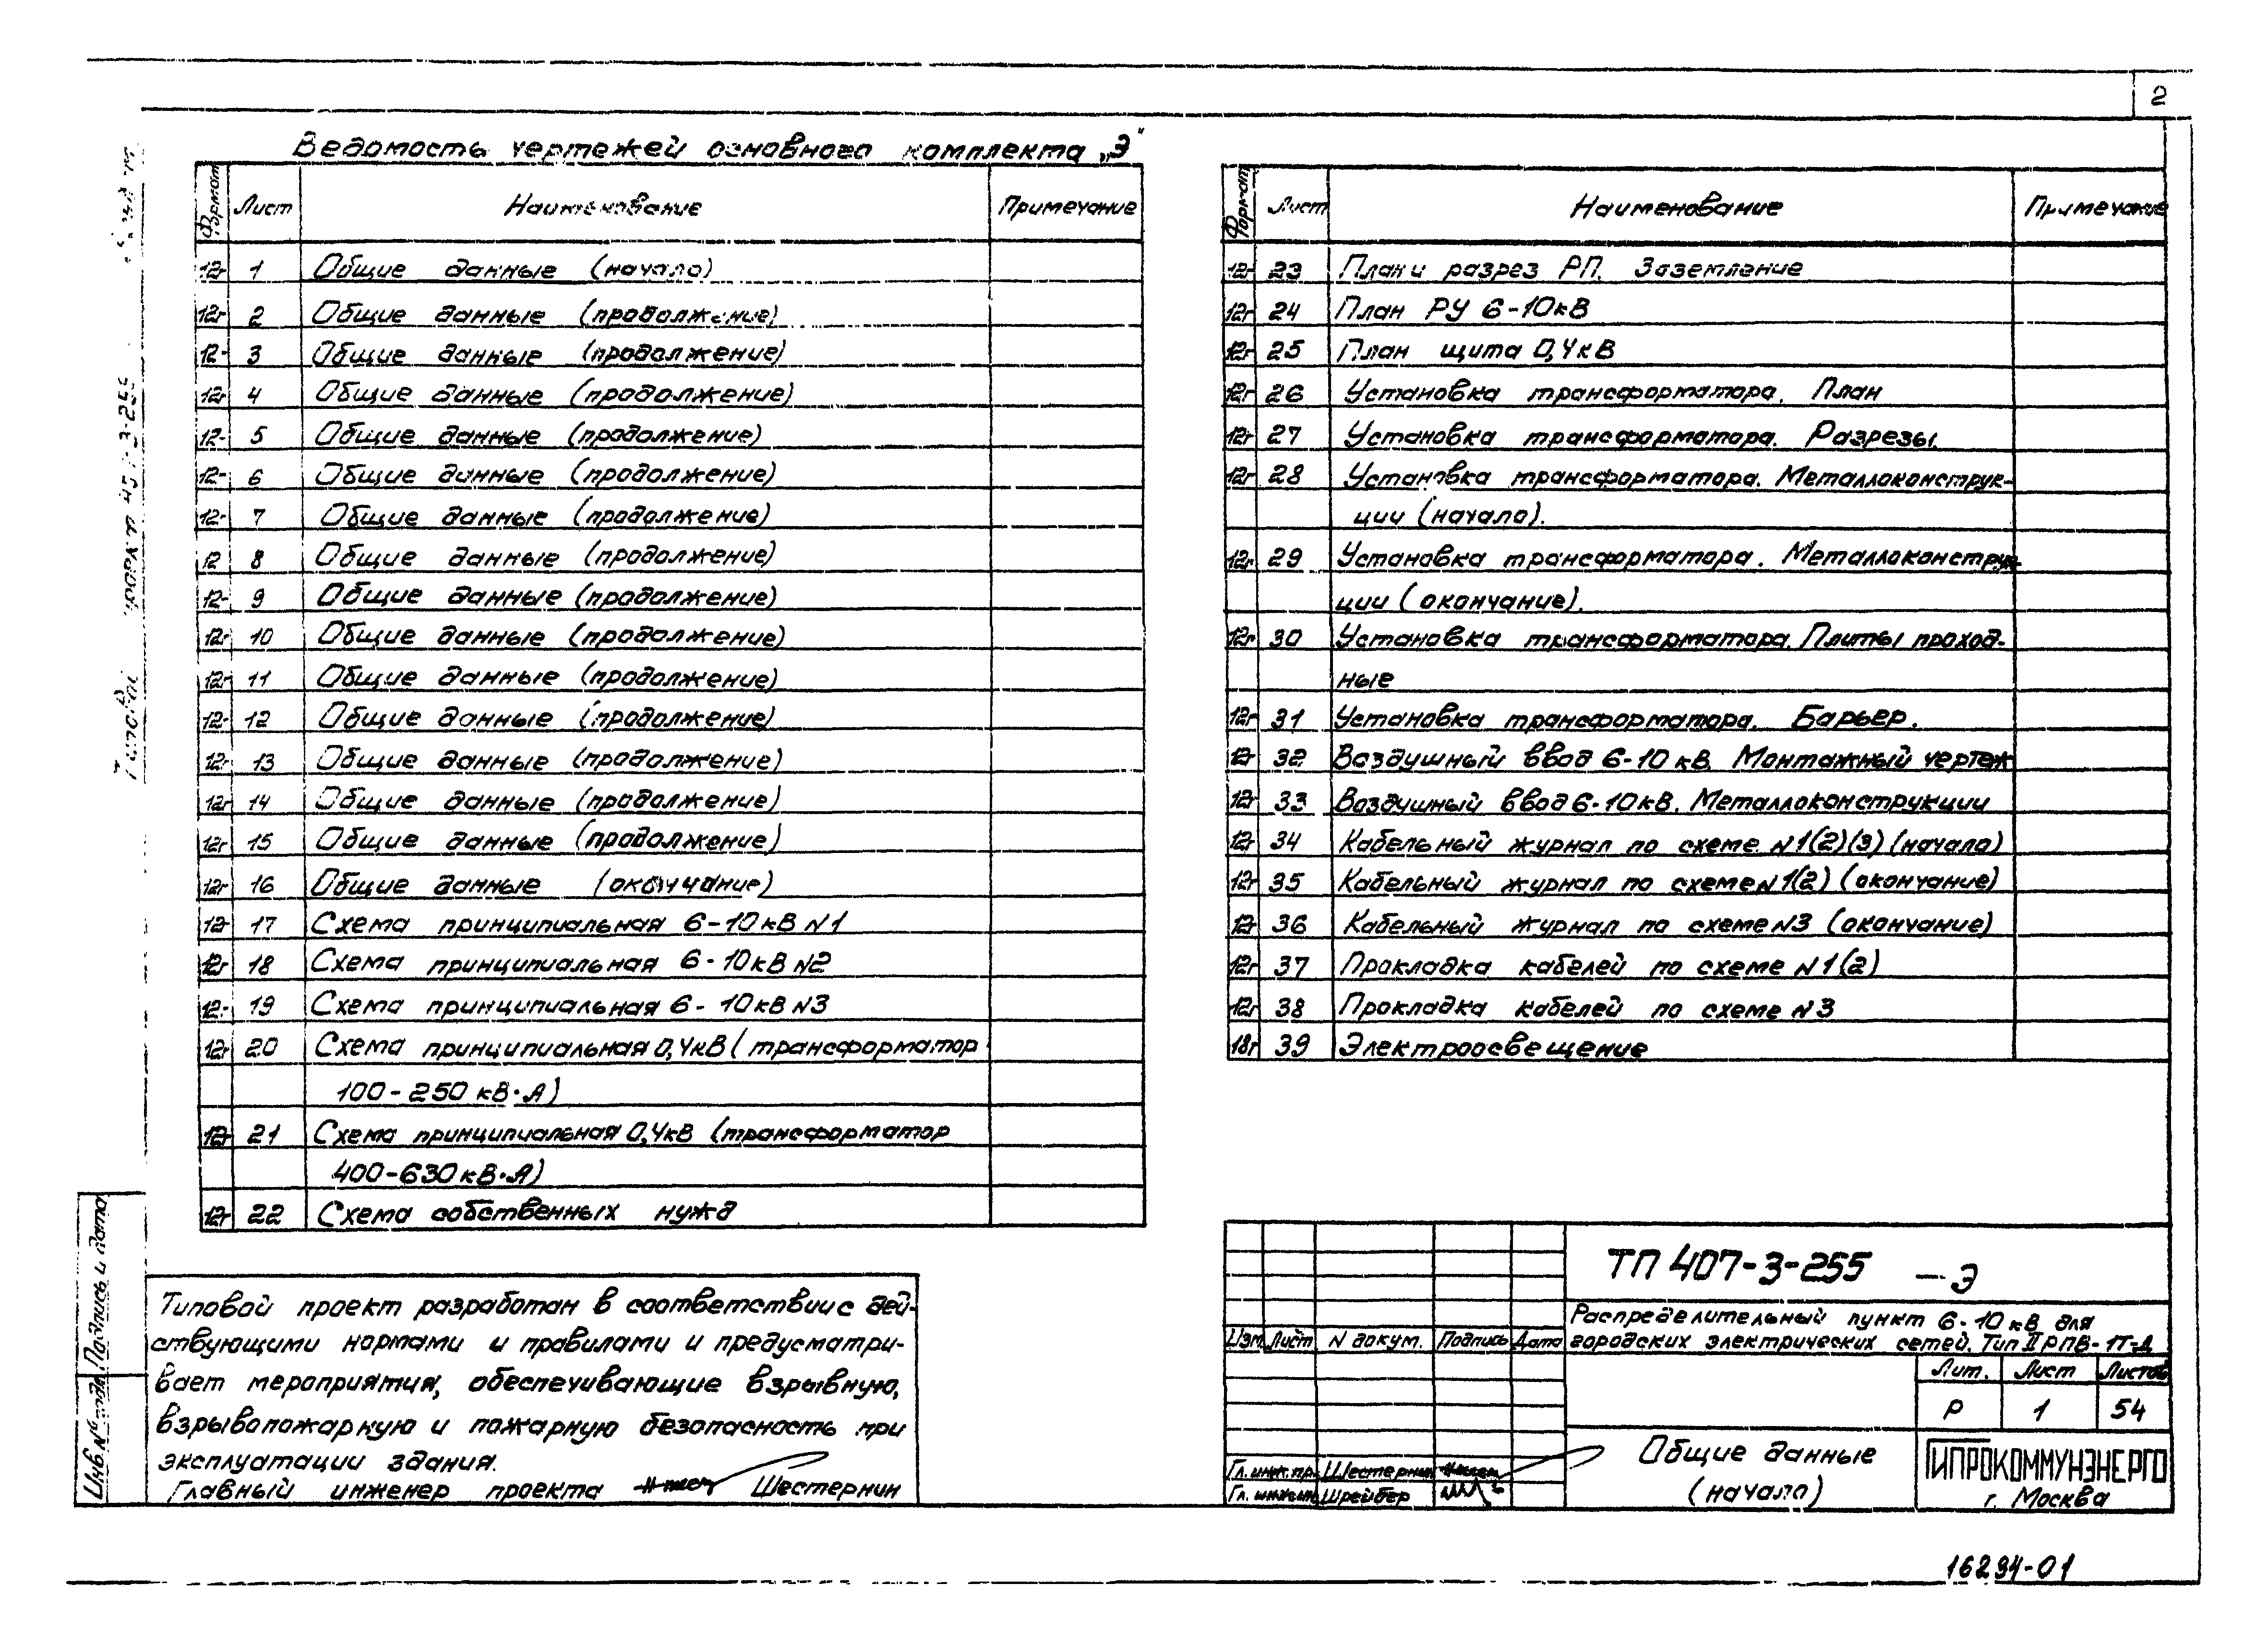 2
Ведомость чертежей основного комплекта „Э"
Формат Лист Наименование Примечание
12г 1 Общие данные (начало)
12г 2 Общие данные (продолжение)
12г 3 Общие данные (продолжение)
12г 4 Общие данные (продолжение)
12г 5 Общие данные (продолжение)
12г 6 Общие данные (продолжение)
12г 7 Общие данные (продолжение)
12 8 Общие данные (продолжение)
12г 9 Общие данные (продолжение)
12г 10 Общие данные (продолжение)
12г 11 Общие данные (продолжение)
12г 12 Общие данные (продолжение)
12г 13 Общие данные (продолжение)
12г 14 Общие данные (продолжение)
12г 15 Общие данные (продолжение)
12г 16 Общие данные (окончание)
12г 17 Схема принципиальная 6-10кВ N1
12г 18 Схема принципиальная 6-10кВ N2
12г 19 Схема принципиальная 6-10кВ N3
12г 20 Схема принципиальная 0,4кВ (трансформатор
100-250 кВ·А)
12г 21 Схема принципиальная 0,4кВ (трансформатор
400-630кВ·А)
12г 22 Схема собственных нужд
Формат Лист Наименование Примечание
12г 23 План и разрез РП. Заземление
12г 24 План РУ 6-10кВ
12г 25 План щита 0,4кВ
12г 26 Установка трансформатора. План
12г 27 Установка трансформатора. Разрезы.
12г 28 Установка трансформатора. Металлоконструк-
ции (начало).
12г 29 Установка трансформатора. Металлоконструк-
ции (окончание).
12г 30 Установка трансформатора. Плиты проход-
ные
12г 31 Установка трансформатора. Барьер.
12г 32 Воздушный ввод 6-10 кВ. Монтажный чертеж
12г 33 Воздушный ввод 6-10кВ. Металлоконструкции
12г 34 Кабельный журнал по схеме N1(2)(3) (начало)
12г 35 Кабельный журнал по схеме N1(2) (окончание)
12г 36 Кабельный журнал по схеме N3 (окончание)
12г 37 Прокладка кабелей по схеме N1(2)
12г 38 Прокладка кабелей по схеме N3
18г 39 Электроосвещение
Типовой проект разработан в соответствии с дей-
ствующими нормами и правилами и предусматри-
вает мероприятия, обеспечивающие взрывную,
взрывопожарную и пожарную безопасность при
эксплуатации здания.
Главный инженер проекта Шестернин
Подпись и дата
Инв. №
Типовой проект 407-3-255
ТП 407-3-255 -Э
Распределительный пункт 6-10 кВ для
городских электрических сетей. Тип II РПВ-1Т-Д
Изм. Лист N докум. Подпись Дата
Лит. Лист Листов
Р 1 54
Общие данные
(начало)
Гл. инж. пр. Шестернин
Гл. инжен. Шрейбер
ГИПРОКОММУНЭНЕРГО
г. Москва
16294-01